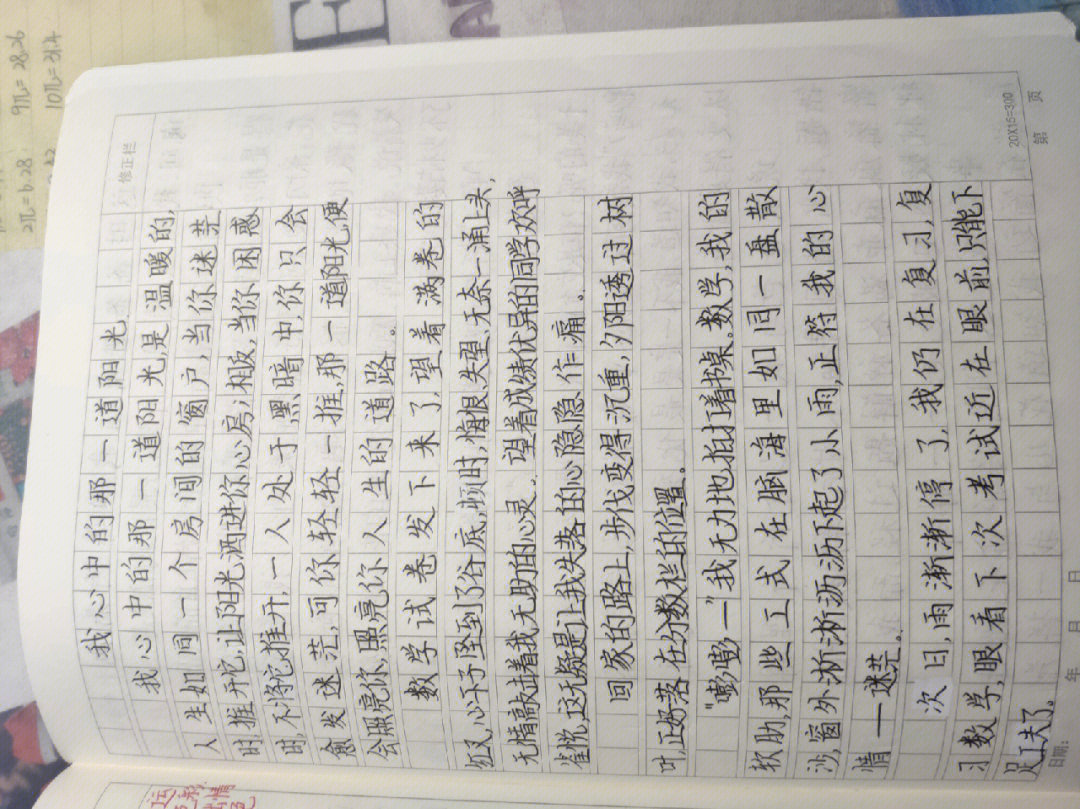 修正栏
我心中的那一道阳光
我心中的那一道阳光,是温暖的,
人生如同一个房间的窗户,当你迷茫
时,推开它,让阳光洒进你心房;相板,当你困惑
时,不将它推开,一人处于黑暗中,你只会
愈发迷茫,可你轻轻一推,那一道阳光,便
会照亮你,照亮你人生的道路。
数学试卷发下来了,望着满卷的
红叉,心一下子坠到了谷底,顿时,悔恨、失望、无奈一涌上头,
无情敲击着我无助的心灵。望着成绩优异的同学欢呼
雀悦,这无疑是让我失落的心隐隐作痛。
回家的路上,步伐变得沉重,夕阳透过树
叶,正好落在分数栏的位置。
“嘭嘭—”我无力地拍打着书桌。数学,我的
软肋,那些工式在脑海里如同一盘散
沙,窗外淅淅沥沥下起了小雨,正符我的心
情——迷茫。
次日,雨渐渐停了,我仍在复习,复
习数学,眼看下次考试近在眼前,只能下
足工夫了。
20X15=300
第 页
日期: 年 月 日
2π=6.28
9π=28.26
10π=31.4
E